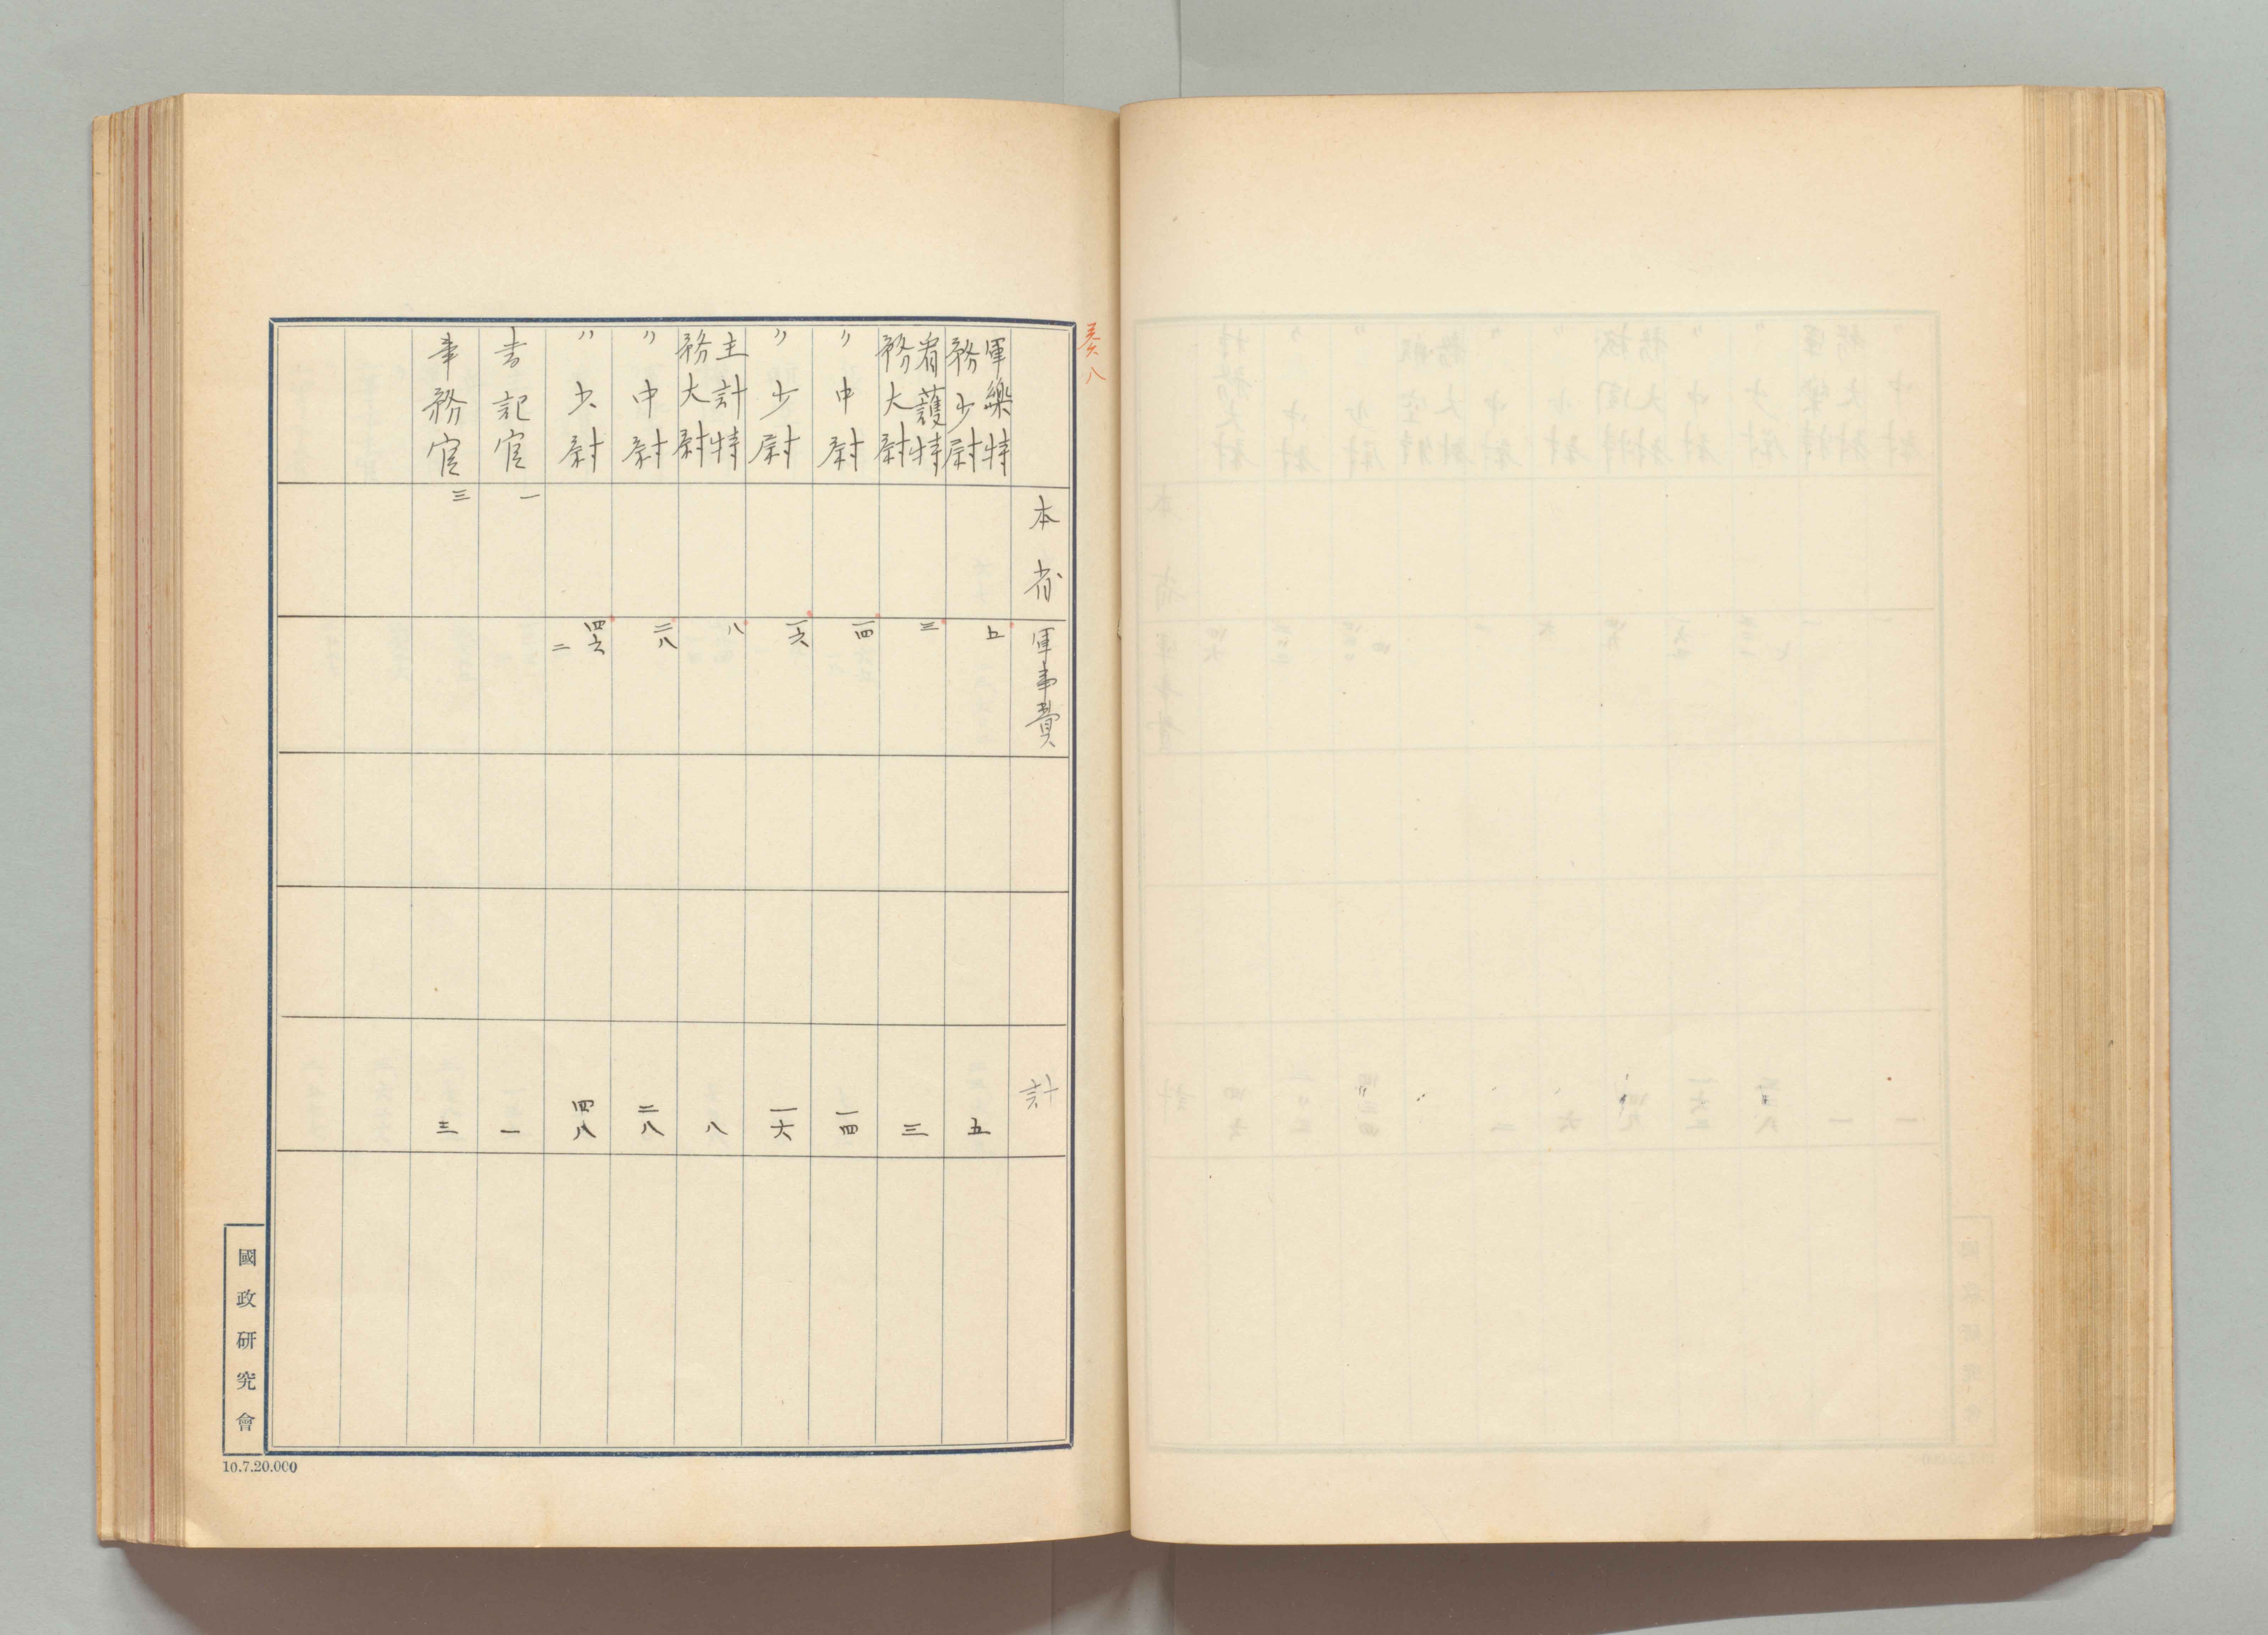 奏八
本省 軍事費 計
軍樂特務少尉 五 五
看護特務大尉 三 三
〃中尉 一四 一四
〃少尉 一六 一六
主計特務大尉 八 八
〃中尉 二八 二八
〃少尉 四六 二 四八
書記官 一 一
事務官 三 三
國政研究會
10.7.20.000